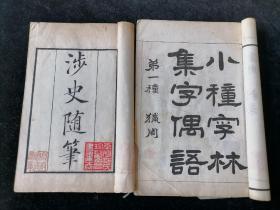 小種字林
集字偶語
第一種
涉史隨筆